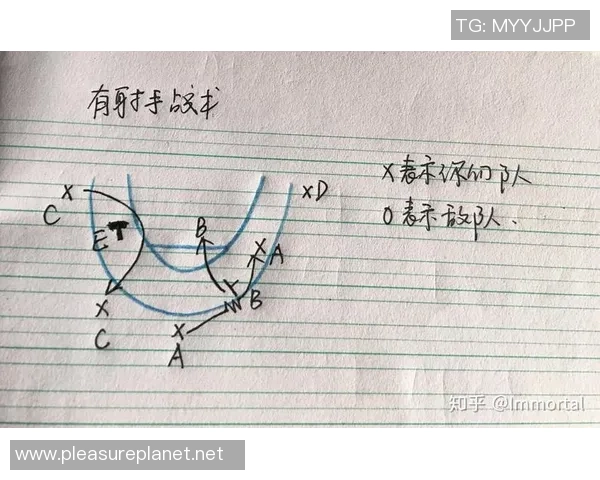 TG: MYYJJPP
有射手战术
X表示你的队
O表示敌队.
X
C
E
B
X
A
X D
X
C
B
X
A
知乎 @Immortal
www.pleasureplanet.net